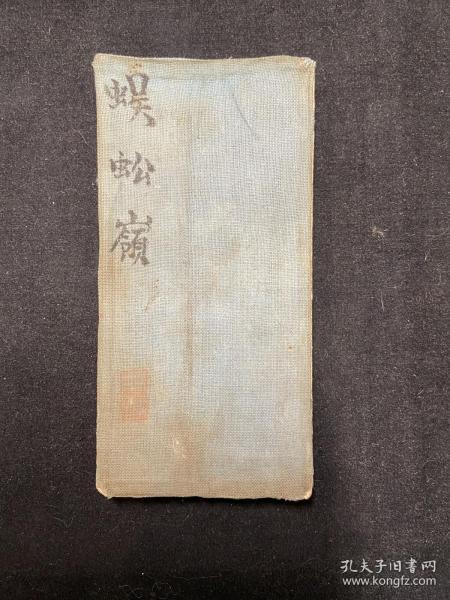 蜈蚣嶺
孔夫子旧书网
www.kongfz.com